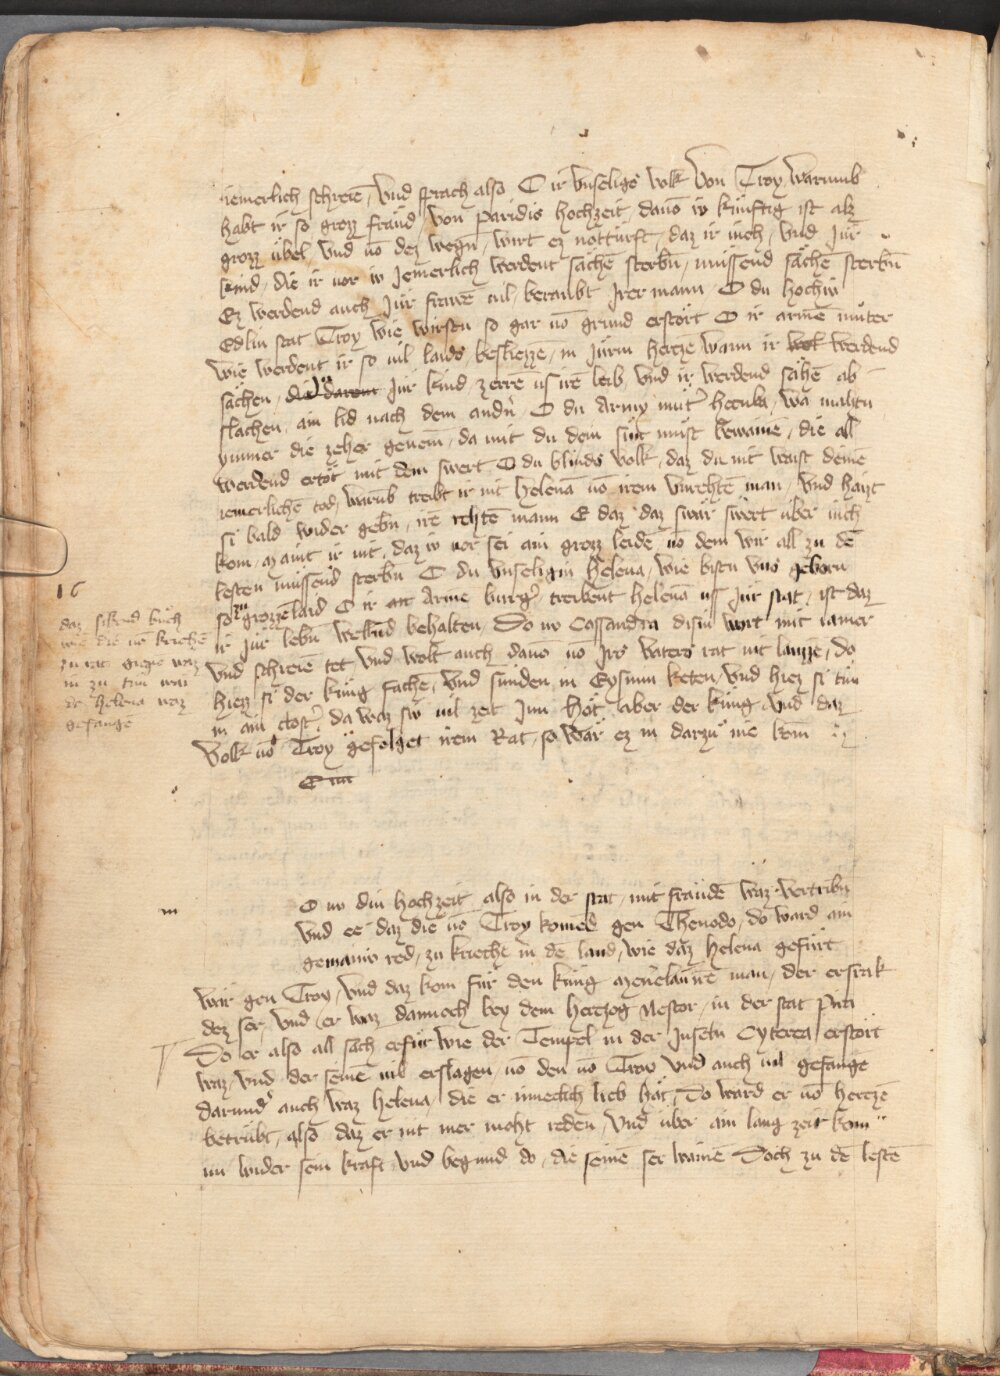 iemerlich schreiē / Vnd sprach also O ir vnseligs volk Von Troy / Warumb
habt ir so grozz fräud / von paridis hochzeit / dauō iv künftig ist alz
grozz übel / vnd vō dez wegn / wirt ez notturft / daz ir iuch / vnd Jür
kind / die ir vor iv Jemerlich werdent sachē sterbn̄ / müssend sächē sterbn̄
Ez werdend auch Jür frawē vil / beraubt Jrer mann O du hochiv
Edliu stat Troy wie wirstu so gar vō grund erstört O ir armē müter
wie werdent ir so vil laids besliezzē / in Jürm hertze wann ir werdend
sächen / Jür kind zerrē uſ irē leib / vnd ir werdend sähē ab
slachen / ain lid nach dem andn̄ O du Army mut̄ hecuba / wa maltu
ymmer die zeher genem̄ / da mit du dein sün müst bewaine / die all
werdend ertöt mit dem swert O du blinds volk / daz du nit waist deinē
iemerlichē tod / warub treibt ir nit Helenā vō irem vnrehtē man / vnd haizt
si bald wider gebn̄ / irē rehtē mann E daz daz swär swert über iuch
kom / maint ir nit / daz iv vor sei ain grozz leidē / vō dem wir all zu dē
lesten müssend sterbn̄ O du vnseligiu Helena / wie bistu vns geborn
so zu grozzē laid O ir Arme burḡ / treibent Helenā uſ Jür stat / ist daz
ir Jür lebn̄ wellnd behalten / Do nv Cassandra disiu wort mit iamer
vnd schreiē tet vnd wolt auch dauō vō Jrs vaters rat nit laizzē / do
hiezz si der küng fache / vnd sünden in Eysnin keten / vnd hiez si tün
in ain clost̄ / da waz siv vil zeit Jnn Hät / aber der küng vnd daz
volk vō Troy gefolget irem Rat / so wär ez in darzü nie kom̄
16
daz sibend buch
wie die vō kriechē
zu rat giege waz
in zu tun wär
dc Helena waz
gefange
O nv diu hochzeit also in der stat / mit fräudē waz vertribn̄
vnd ee daz die vō Troy komēd gen Thenodo / do ward ain
gemainiv red / zu kriechē in dē land / wie daz Helena gefürt
wär gen Troy / vnd daz kom für den küng menelaum irē man / der ersrak
dez ser / vnd er waz dannoch bey dem hertzog Nestor / in der stat pira
Do er also all sach erfür wie der Tempel in der Jnseln Cyterea erstört
waz / vnd der seinē vil erslagen / vō den vō Troy vnd auch vil gefange
darund̄ auch waz Helena / die er inneclich lieb hät / Do ward er vō hertzē
betrübt / also daz er nit mer moht reden / vnd über ain lang zeit kom
im wider sein kraft / vnd begund do / die seinē ser wainē Doch zu dē lestē